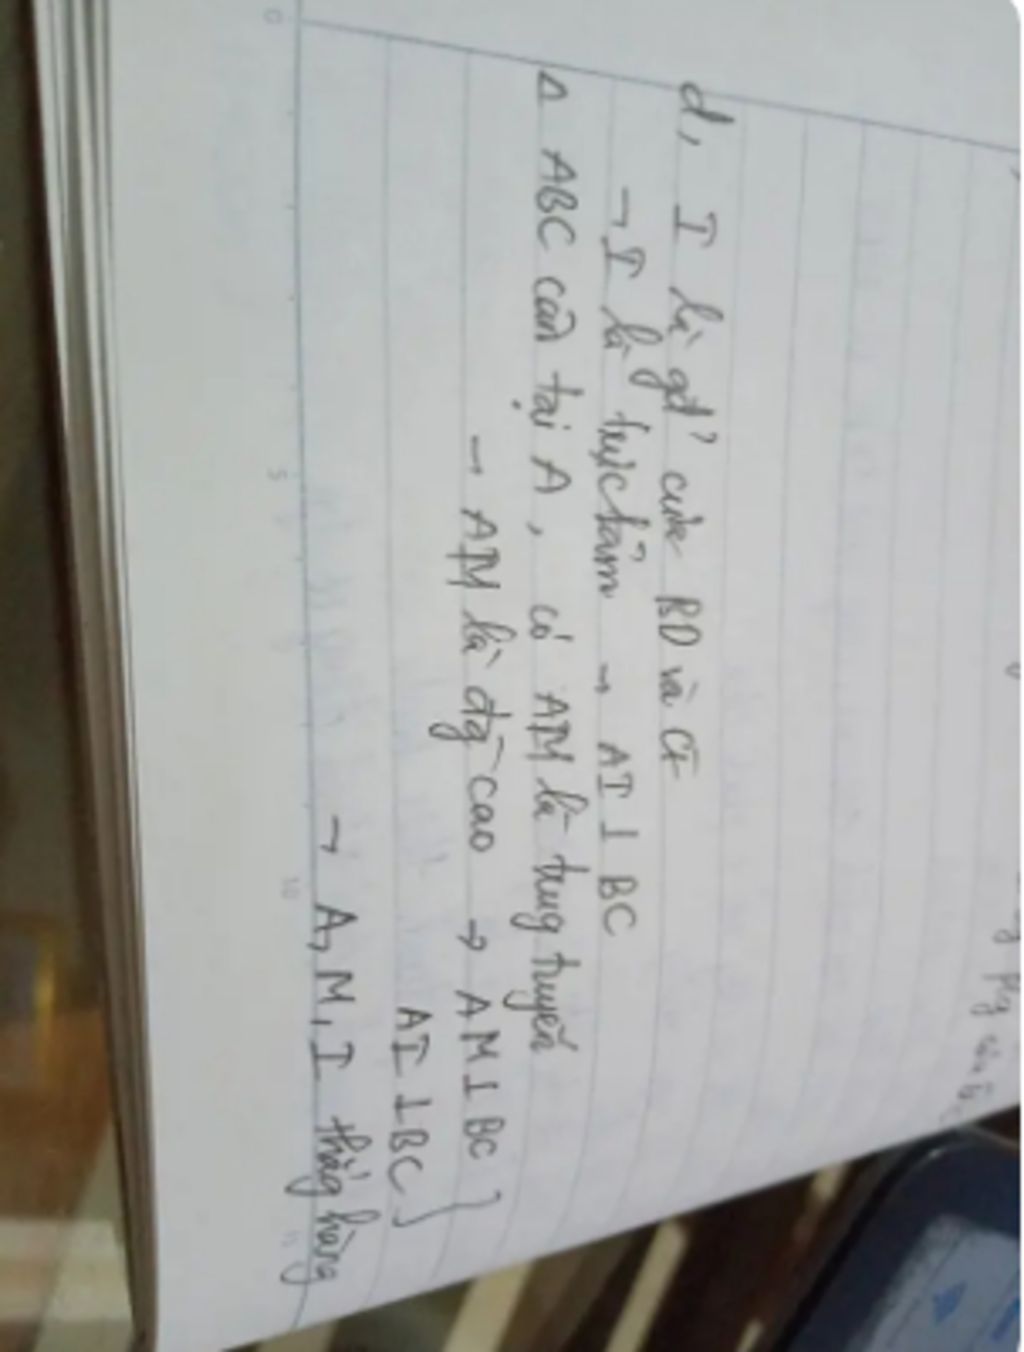 d, I là gđ' của BD và CF
→ I là trực tâm → AI ⊥ BC
Δ ABC cân tại A, có AM là trug tuyến
→ AM là đg cao → AM ⊥ BC }
AI ⊥ BC }
→ A, M, I thẳg hàng